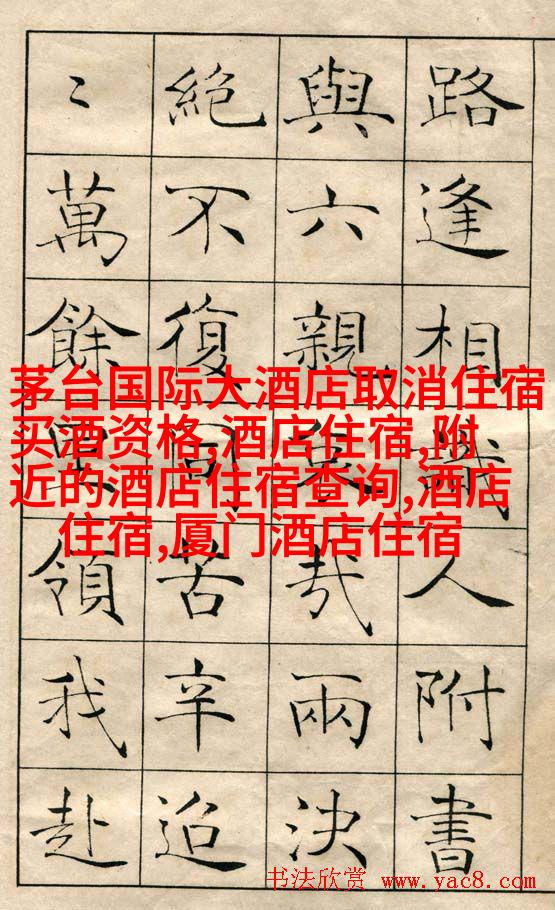 路逢相識人附書
與六親哀哉兩決
絕不復同苦辛迢
〻萬餘領我赴
茅台国际大酒店取消住宿
买酒资格,酒店住宿,附
近的酒店住宿查询,酒店
住宿,厦门酒店住宿
书法欣赏 www.yac8.com